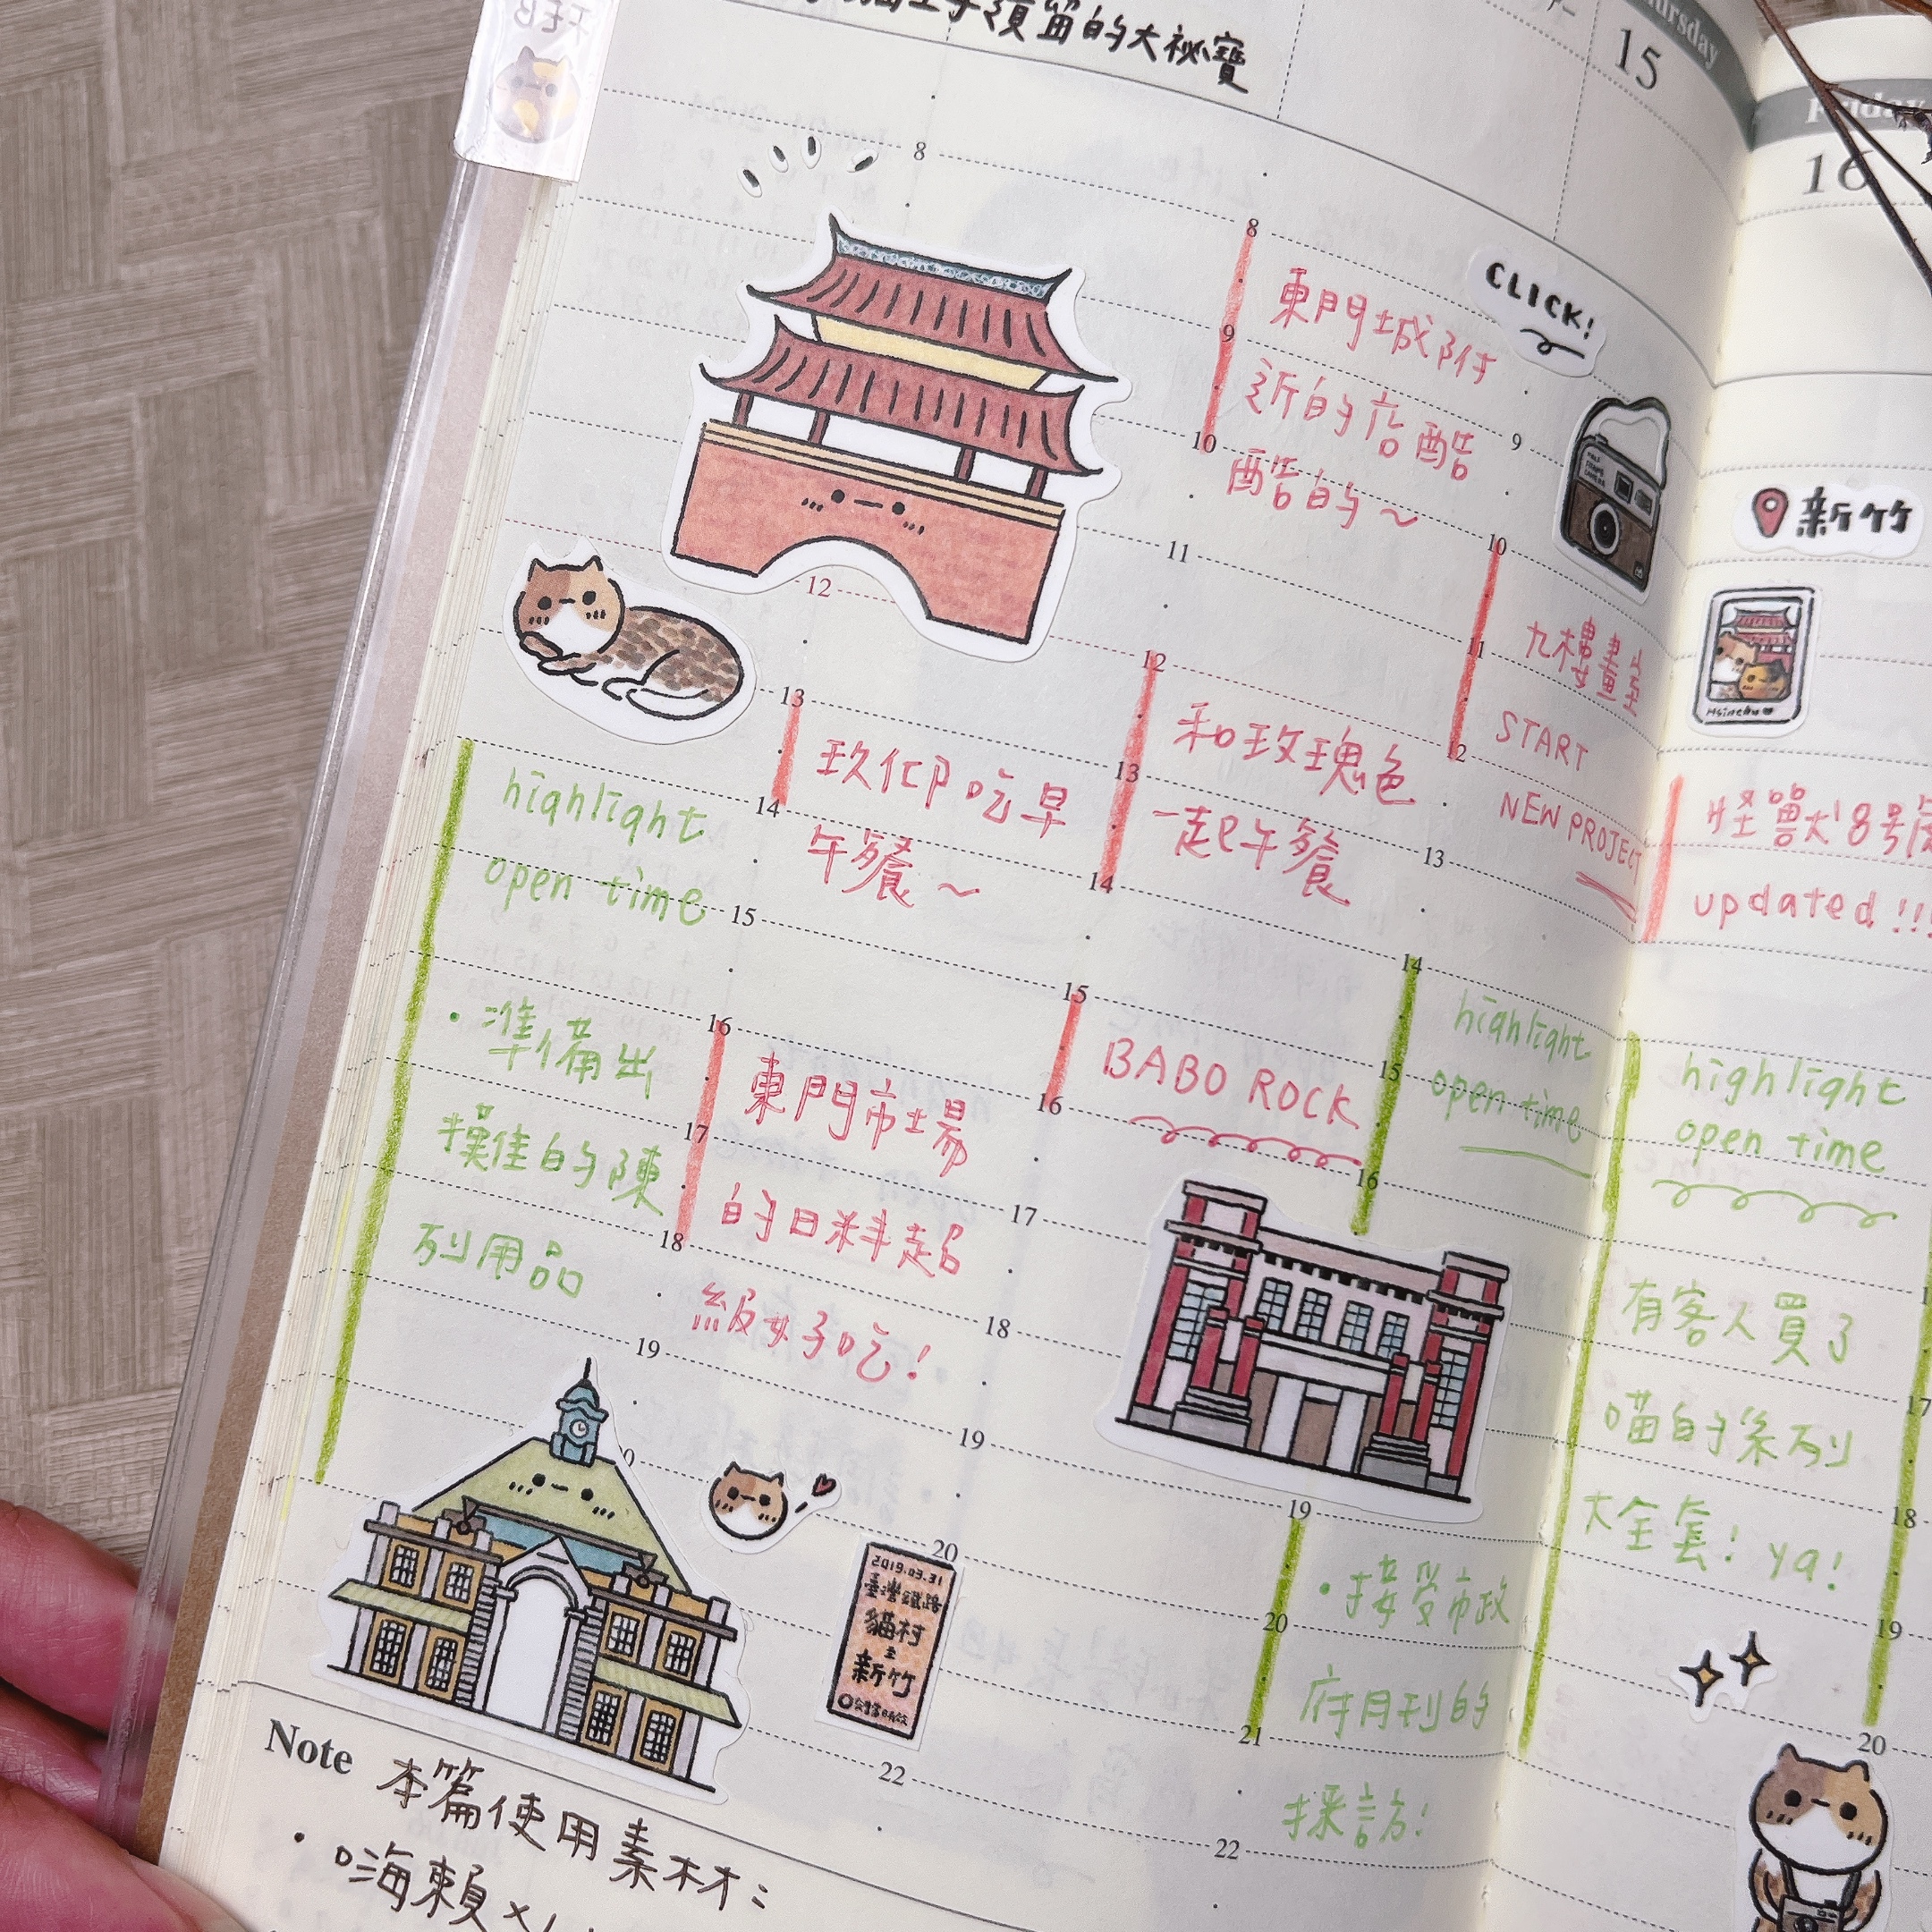 FEB
須留的大祕寶
Thursday
15
Friday
16
8
8
CLICK!
東門城附
近的店酷
酷的~
9
10
9
10
11
11
12
12
12
新竹
Hsinchu
九樓畫室
START
NEW PROJECT
13
13
13
14
14
玖仰吃早
午餐~
和玫瑰色
一起午餐
怪獸8号
updated!!!
highlight
open time
15
15
14
15
16
16
16
・準備出
攤佳的陳
列用品
東門市場
的日料超
級好吃!
17
18
19
BABO ROCK
highlight
open time
highlight
open time
17
18
19
有客人買了
喵的系列
大全套! ya!
17
18
19
20
20
2019.03.31
臺灣鐵路
貓村
至
新竹
19
20
21
22
22
・接受市政
府月刊的
採訪!
20
Note
本篇使用素材:
・嗨賴